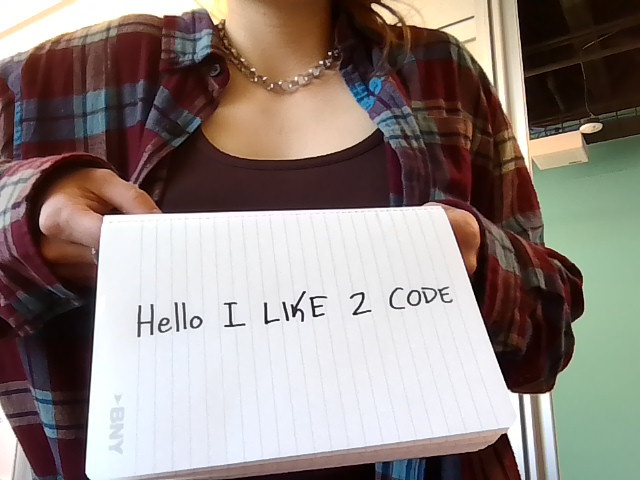 Hello I LIKE 2 CODE
>BNY